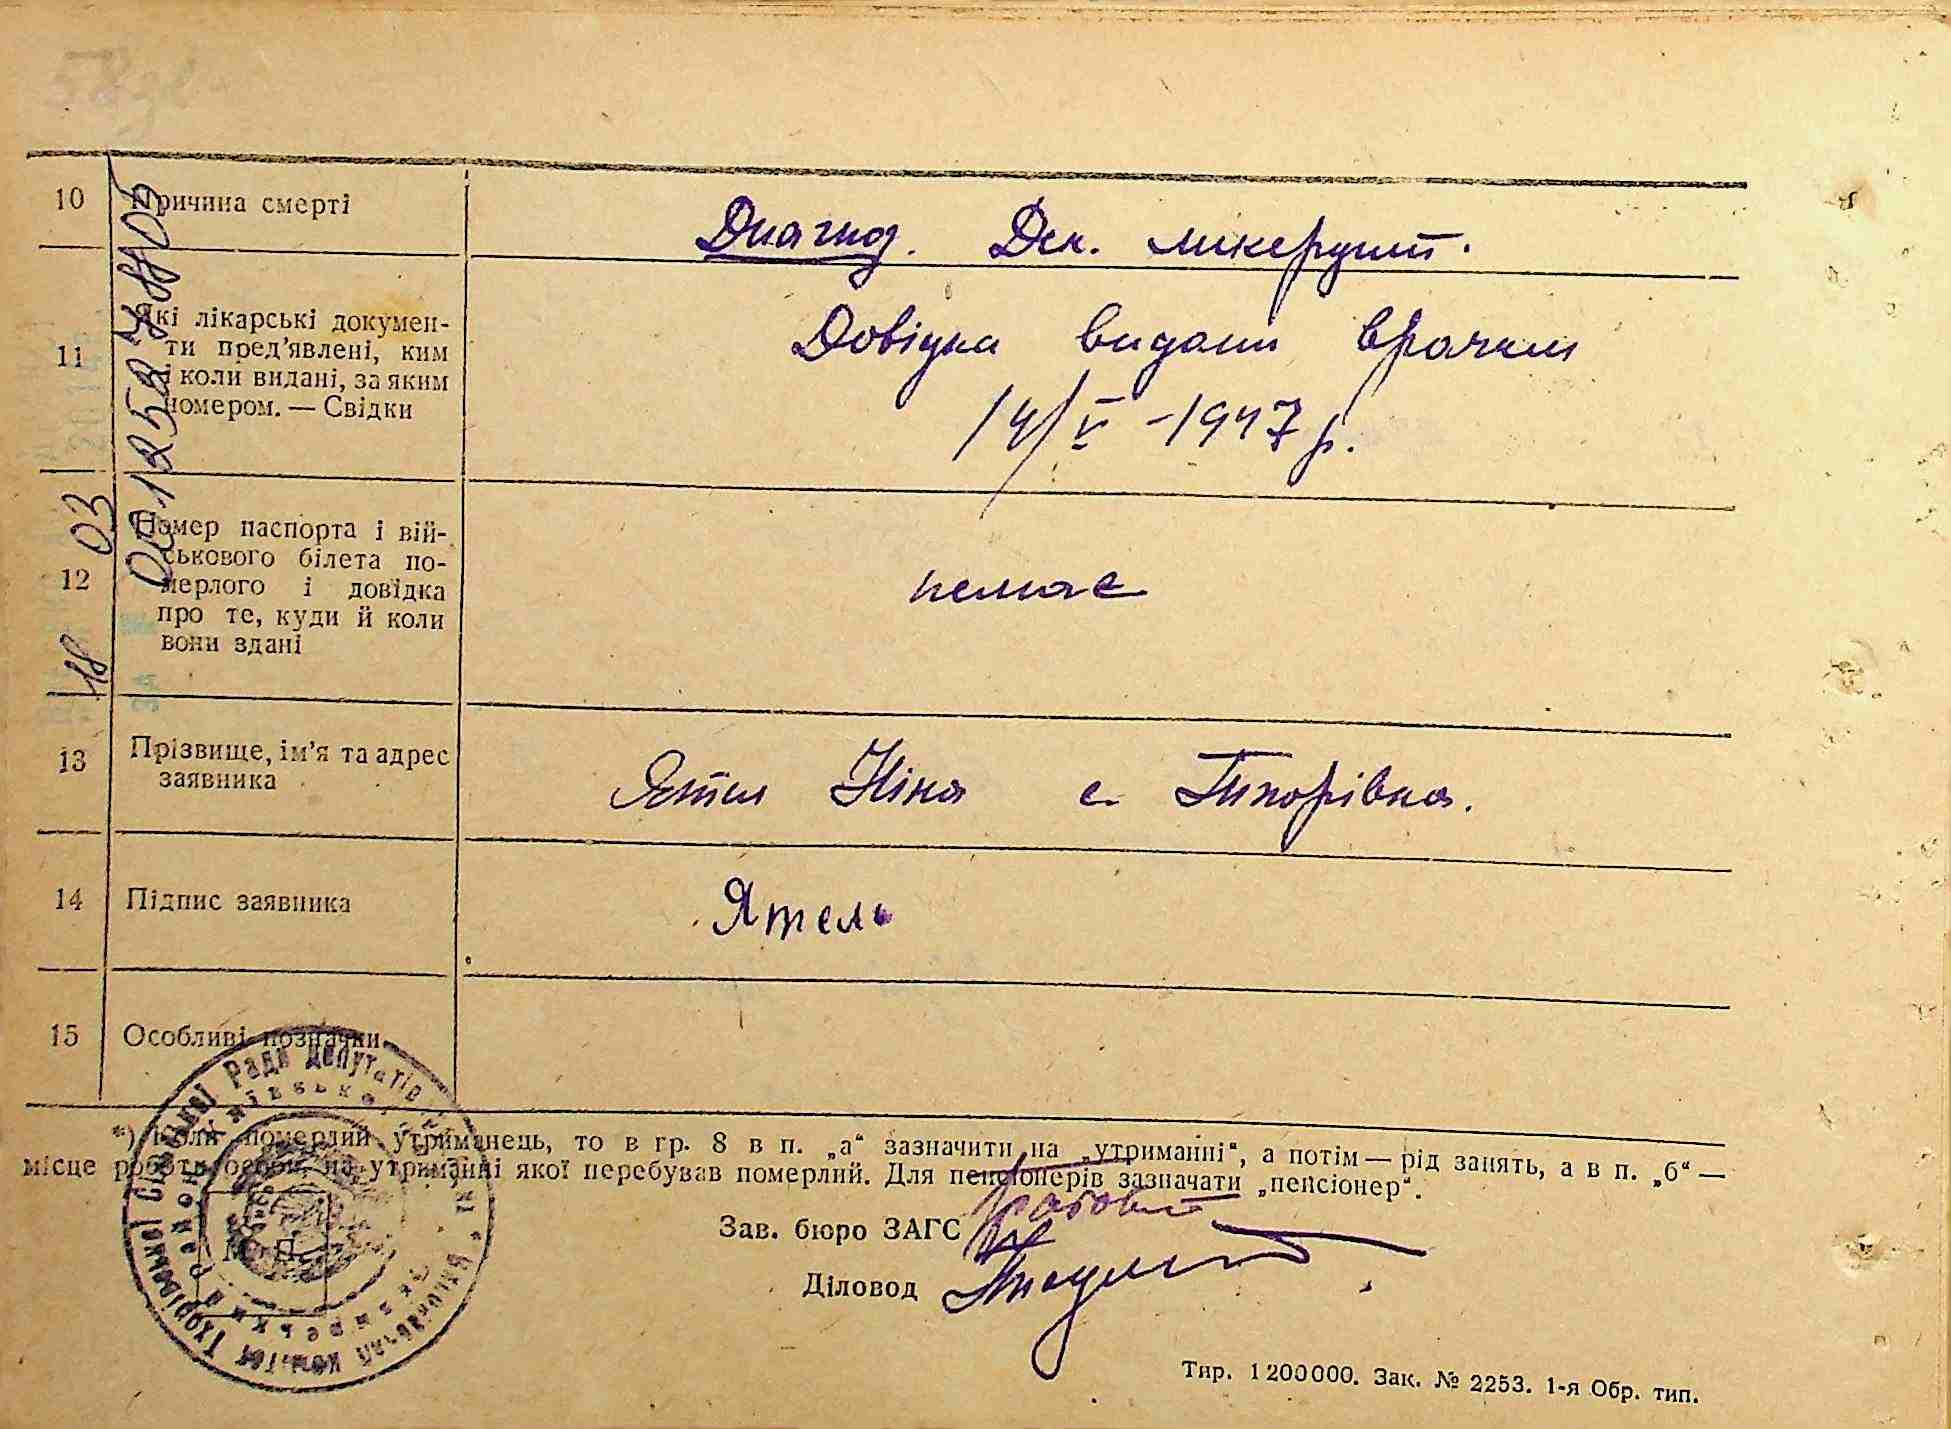 10 Причина смерті
Диагноз. Дек.
11 Які лікарські докумен-
ти пред'явлені, ким
і коли видані, за яким
номером. — Свідки
Довідка видана врачем
14/V -1947 р.
12 Номер паспорта і вій-
ськового білета по-
мерлого і довідка
про те, куди й коли
вони здані
немає
13 Прізвище, ім'я та адрес
заявника
Ятель Ніна с. Тхорівка.
14 Підпис заявника
Ятель
15 Особливі позначки
*) Коли померлий утриманець, то в гр. 8 в п. „а“ зазначити на „утриманні“, а потім — рід занять, а в п. „б“ —
місце роботи особи, на утриманні якої перебував померлий. Для пенсіонерів зазначати „пенсіонер“.
Зав. бюро ЗАГС
Діловод
М. П.
Виконавчий комітет Тхорівської Сільської Ради Депутатів
Тир. 1200000. Зак. № 2253. 1-я Обр. тип.
18 03